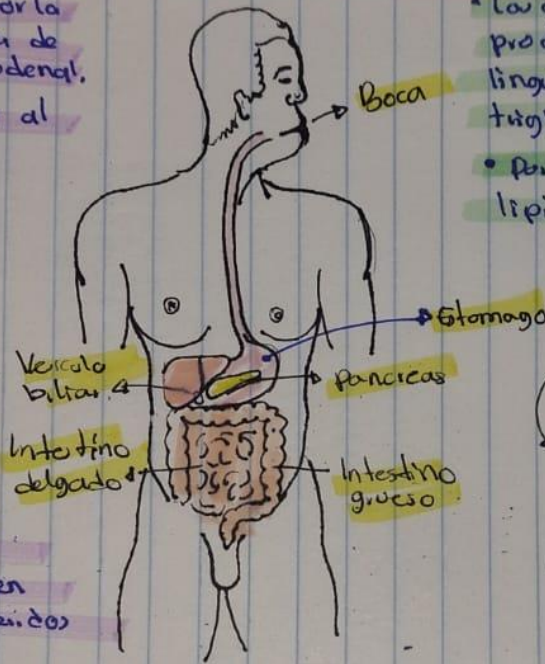 or la
de
denal.
al
Boca
Estomago
Vesicula
biliar
pancreas
Intestino
delgado
Intestino
grueso
en
• Las
pro
ling
trig
• Par
lip